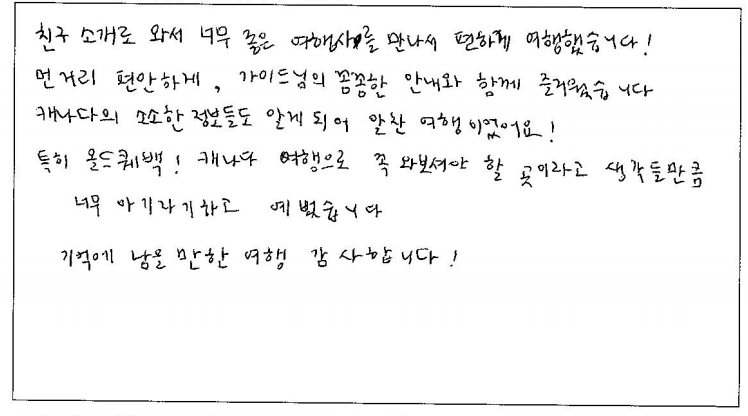 친구 소개로 와서 너무 좋은 여행사를 만나서 편하게 여행했습니다!
먼거리 편안하게, 가이드님의 꼼꼼한 안내와 함께 즐거웠습니다
캐나다의 소소한 정보들도 알게 되어 알찬 여행이었어요!
특히 올드퀘백! 캐나다 여행으로 꼭 와보셔야 할 곳이라고 생각들만큼
너무 아기자기하고 예뻤습니다
기억에 남을 만한 여행 감사합니다!